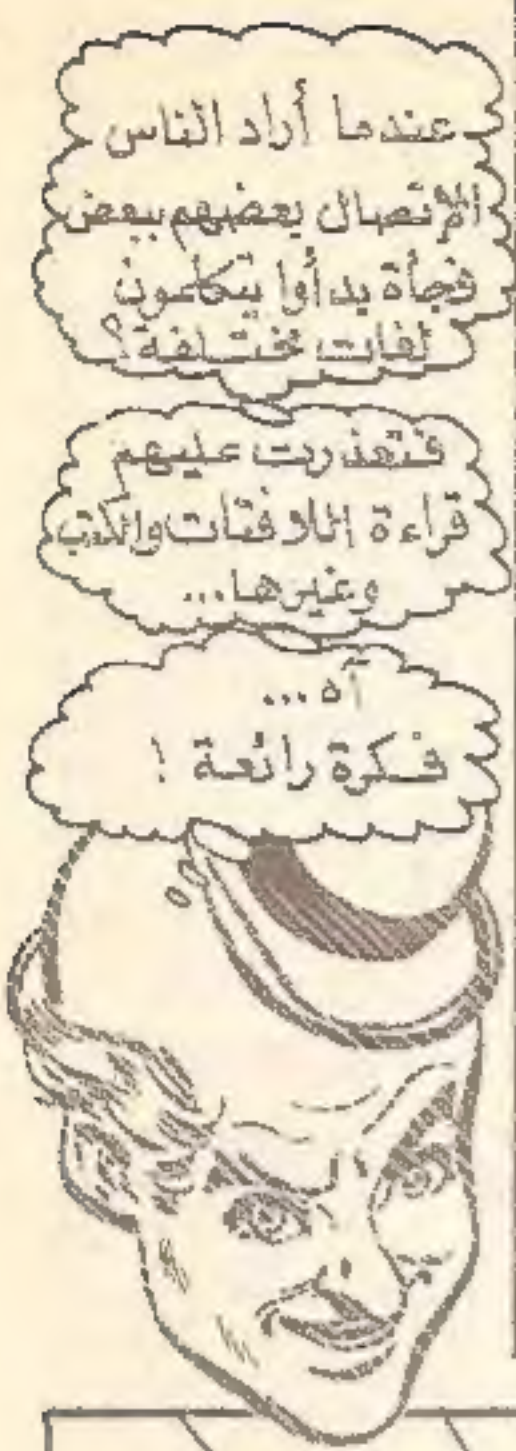 عندما أراد الناس
الإتصال بعضهم ببعض
فجأة بدأوا يتكلمون
لغات مختلفة؟
فتعذرت عليهم
قراءة اللافتات والكتب
وغيرها...
آه...
فكرة رائعة !